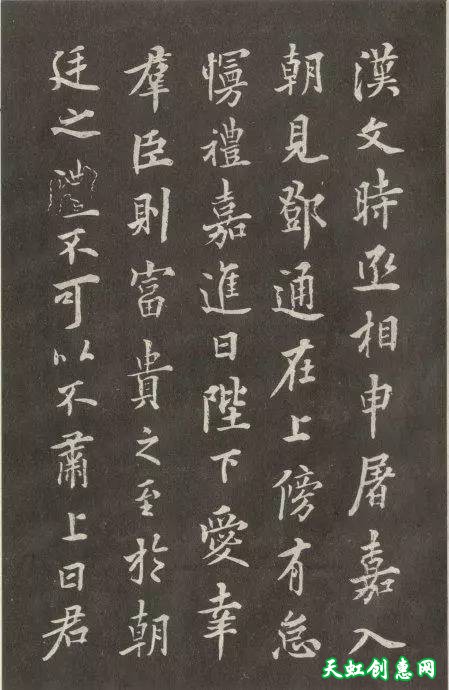 漢文時丞相申屠嘉入
朝見鄧通在上傍有怠
慢禮嘉進曰陛下愛幸
羣臣則富貴之至於朝
廷之不可以不肅上曰君
天虹创惠网